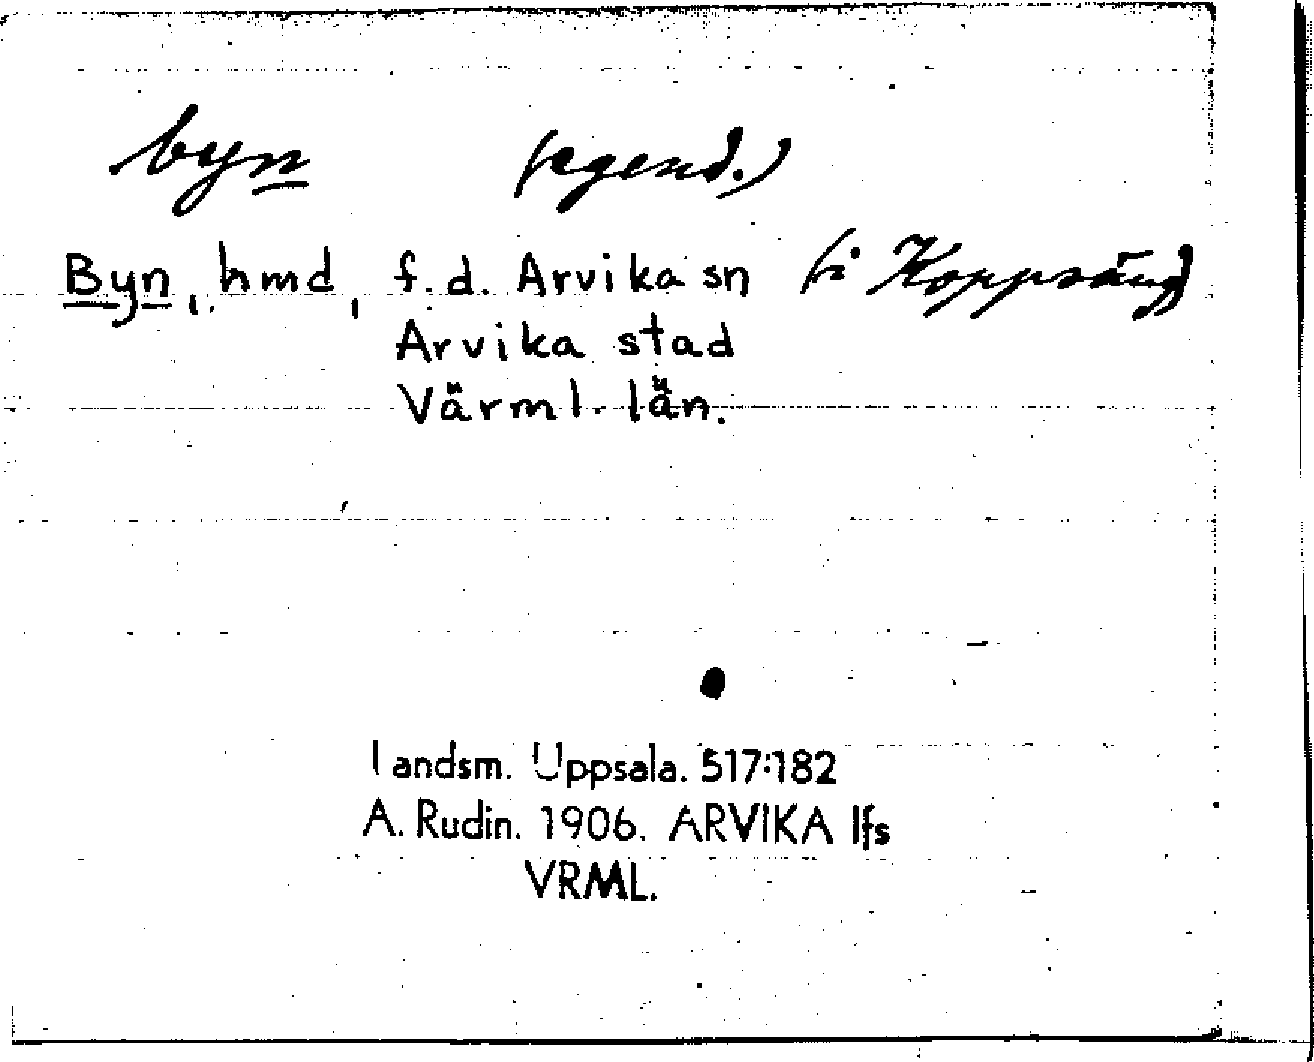 byn (egend.)
Byn, hmd, f.d. Arvika sn (i Koppsäng)
Arvika stad
Värml. län.
Landsm. Uppsala. 517:182
A. Rudin. 1906. ARVIKA lfs
VRML.